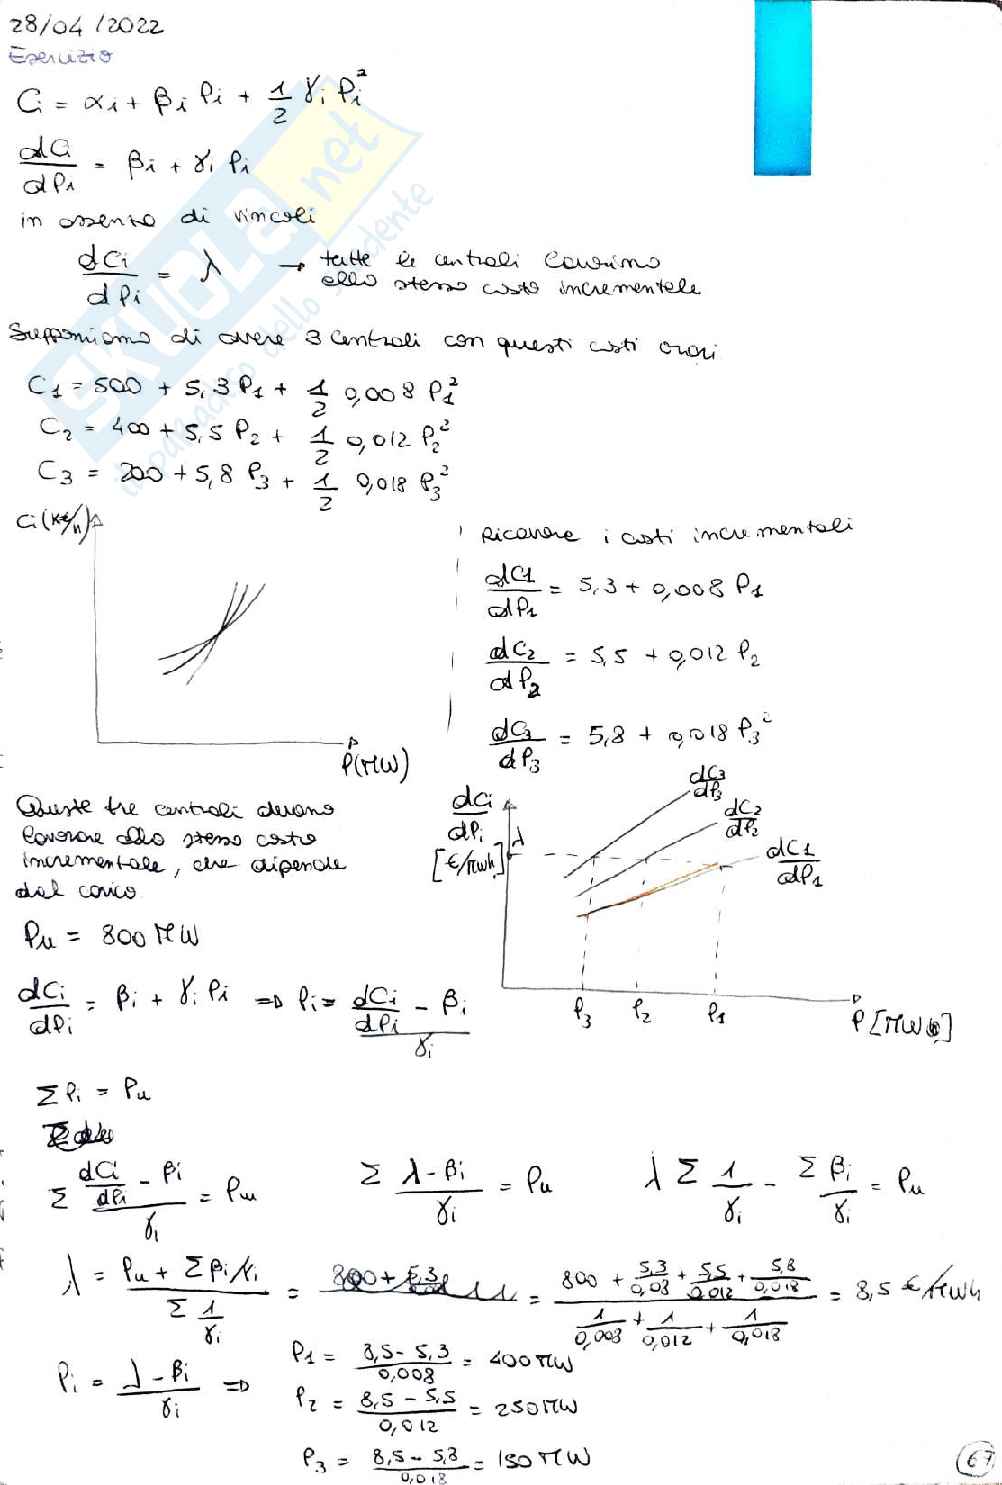 28/04/2022
Esercizio
Ci = αi + βi Pi + 1/2 γi Pi²
dCi/dPi = βi + γi Pi
in assenza di vincoli
dCi/dPi = λ → tutte le centrali lavorano
allo stesso costo incrementale
Supponiamo di avere 3 centrali con questi costi orari
C1 = 500 + 5,3 P1 + 1/2 0,008 P1²
C2 = 400 + 5,5 P2 + 1/2 0,012 P2²
C3 = 200 + 5,8 P3 + 1/2 0,018 P3²
Ci (k€/h)
P(MW)
Ricavare i costi incrementali
dC1/dP1 = 5,3 + 0,008 P1
dC2/dP2 = 5,5 + 0,012 P2
dC3/dP3 = 5,8 + 0,018 P3²
Queste tre centrali devono
lavorare allo stesso costo
incrementale, che dipende
dal carico
dCi/dPi
[€/MWh]
λ
dC3/dP3
dC2/dP2
dC1/dP1
P3 P2 P1
P [MW]
Pu = 800 MW
dCi/dPi = βi + γi Pi => Pi = (dCi/dPi - βi)/γi
Σ Pi = Pu
Σ (dCi/dPi - βi)/γi = Pu Σ (λ - βi)/γi = Pu λ Σ 1/γi - Σ βi/γi = Pu
λ = (Pu + Σ βi/γi)/(Σ 1/γi) = = (800 + 5,3/0,03 + 5,5/0,012 + 5,8/0,018)/(1/0,008 + 1/0,012 + 1/0,018) = 8,5 €/MWh
Pi = (λ - βi)/γi => P1 = (8,5 - 5,3)/0,008 = 400 MW
P2 = (8,5 - 5,5)/0,012 = 250 MW
P3 = (8,5 - 5,8)/0,018 = 150 MW
67
SKUOLA.net